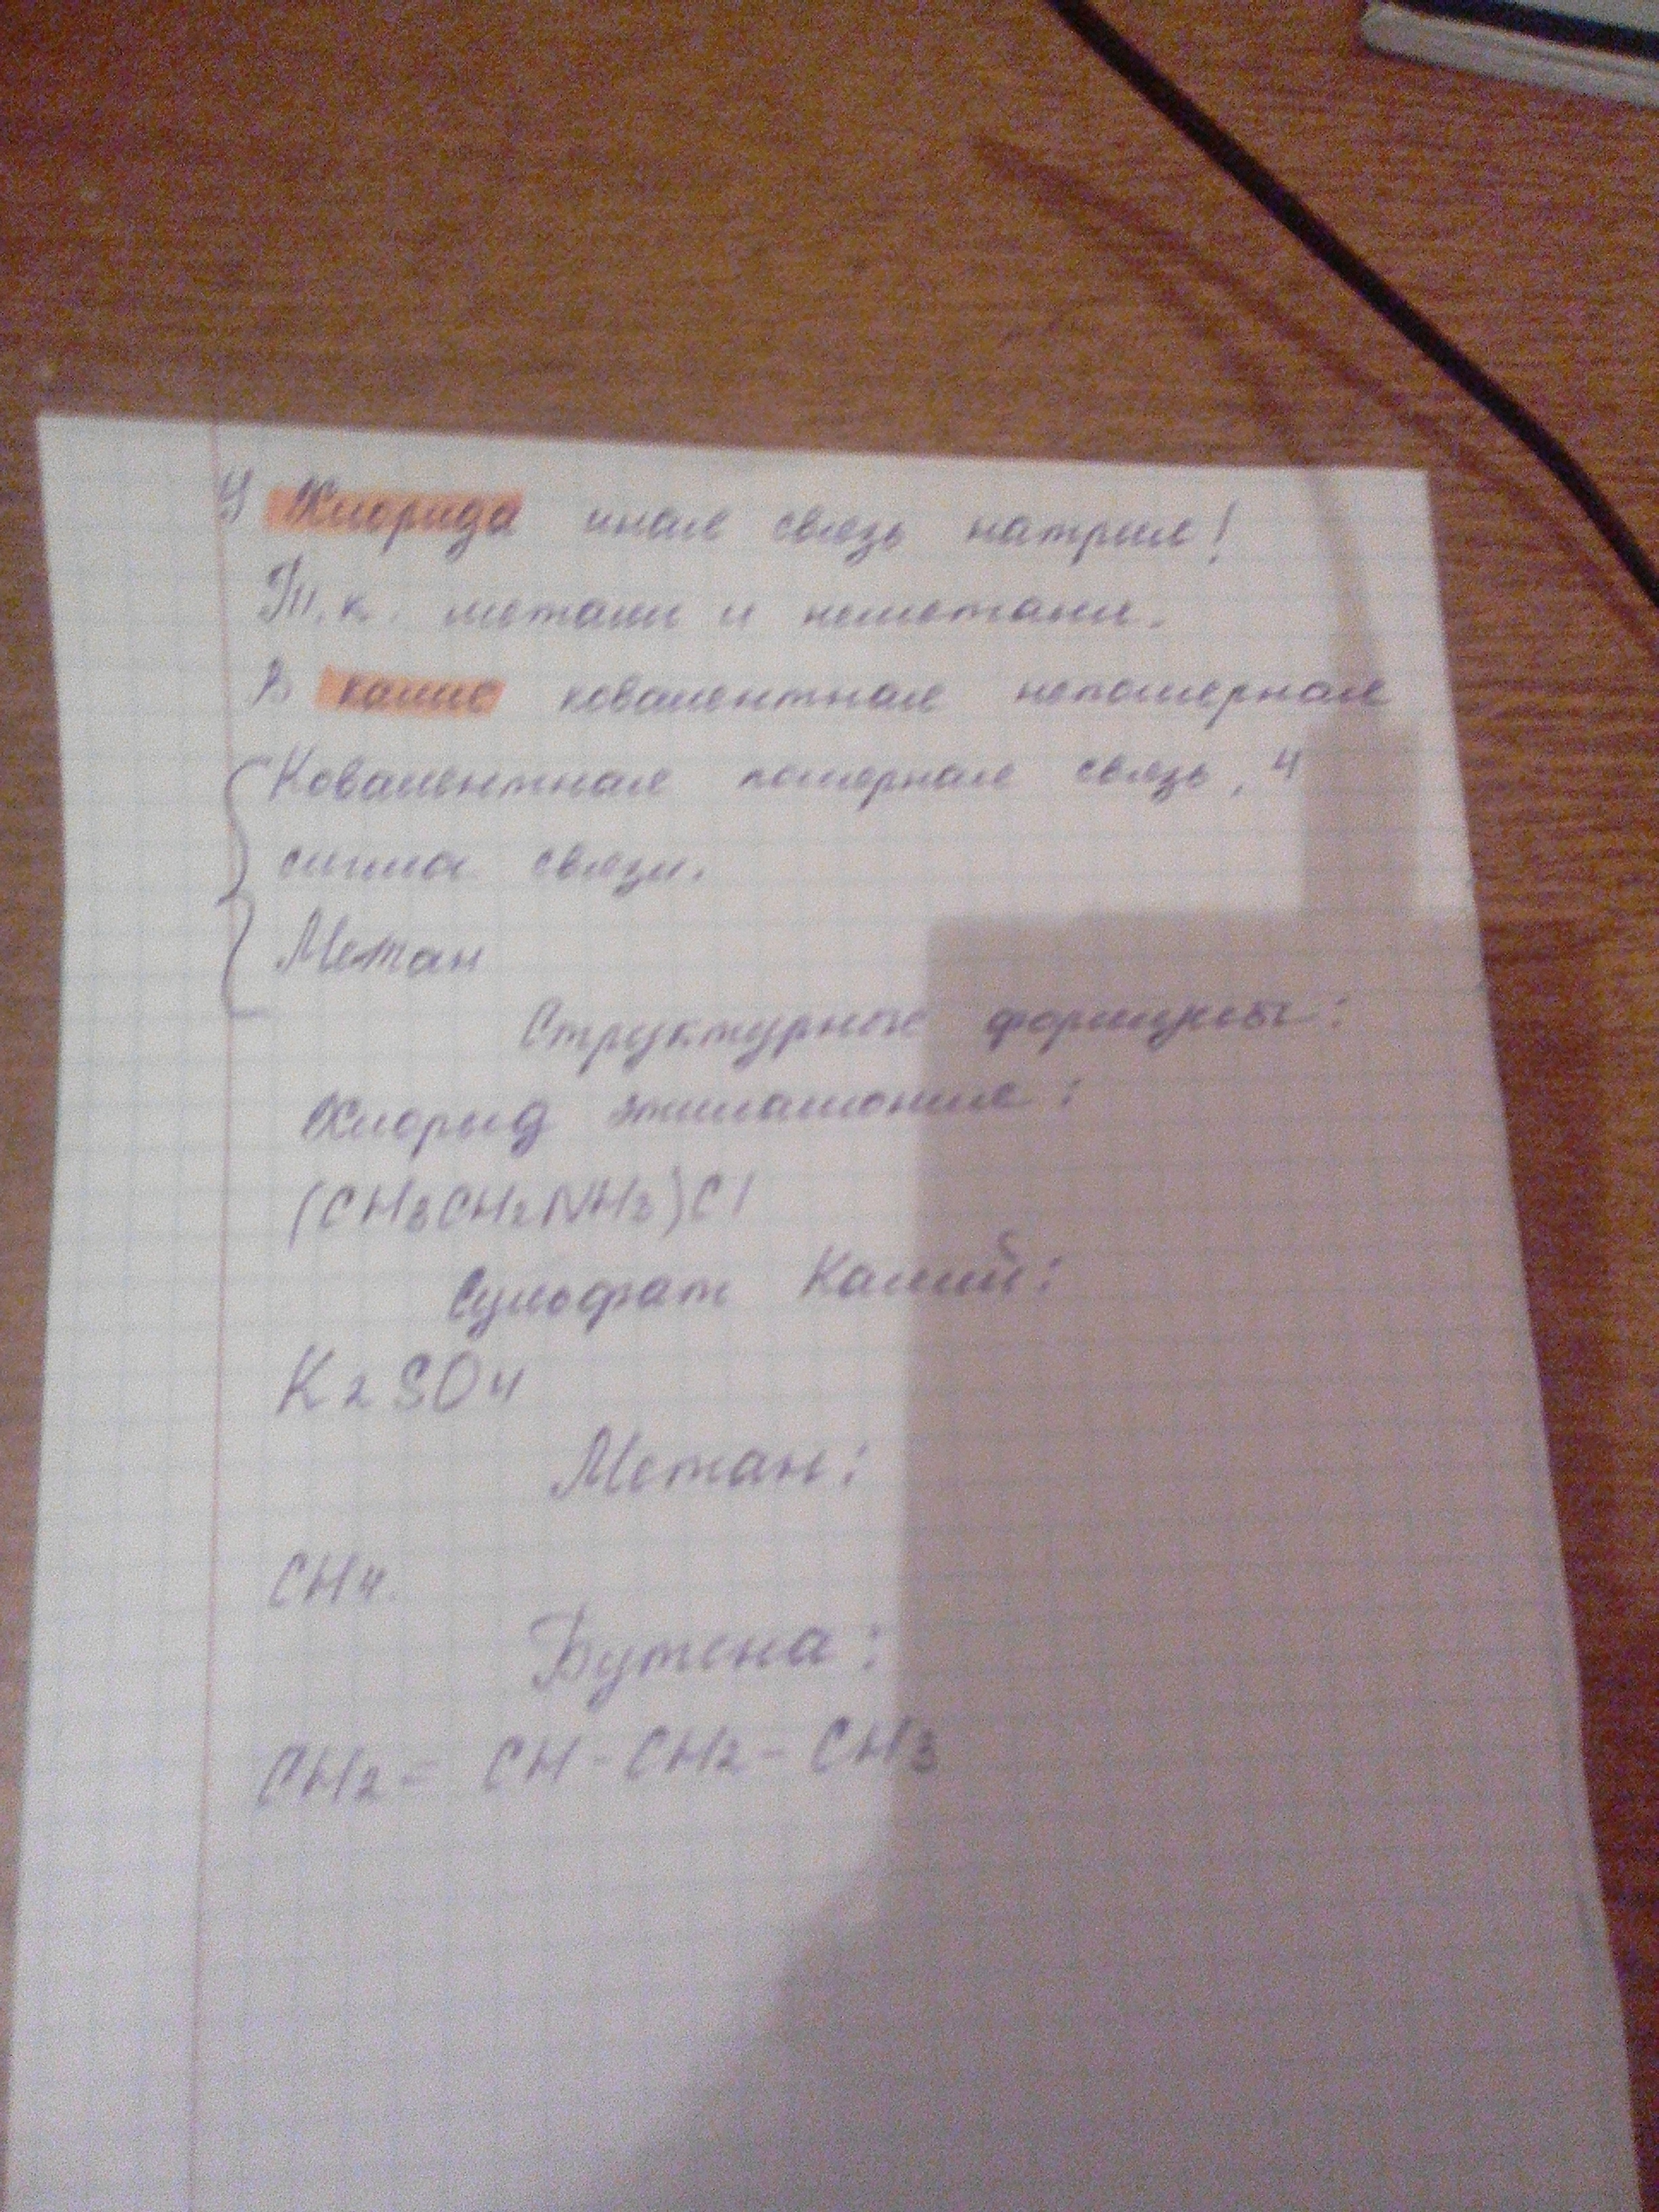 У Хлорида иная связь натрия!
Т.к. металл и неметалл.
В калие ковалентная неполярная
Ковалентная полярная связь, 4
сигма связи.
Метан
Структурные формулы:
Хлорид этиламония:
(CH3CH2NH3)Cl
Сульфат Калий:
K2SO4
Метан:
CH4.
Бутена:
CH2= CH-CH2-CH3